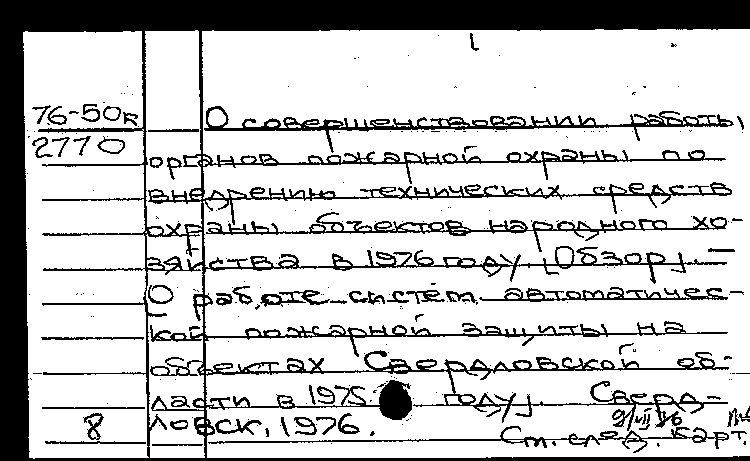 76-50к
2770
О совершенствовании работы
органов пожарной охраны по
внедрению технических средств
охраны объектов народного хо-
зяйства в 1976 году. [Обзор]. —
[О работе систем автоматичес-
кой пожарной защиты на
объектах Свердловской об-
ласти в 1975 году]. Сверд-
8 ловск, 1976.
См. след. карт.